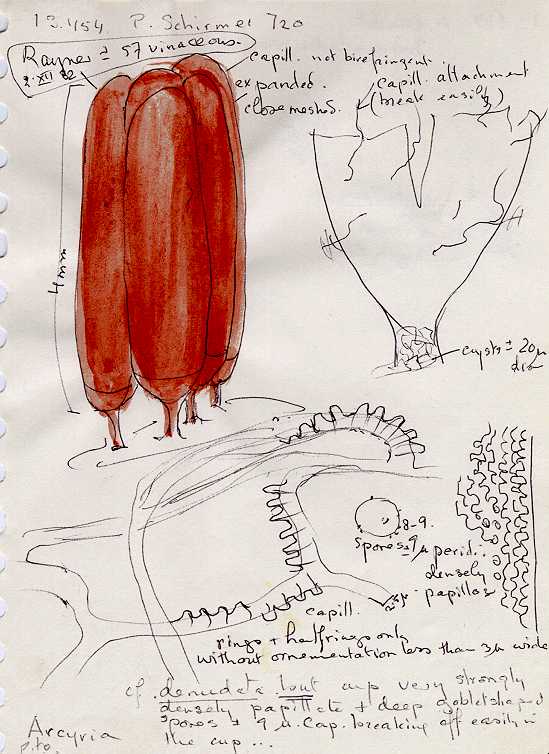 13.454 P. Schirmer 720
Rayner ± 57 vinaceous.
2.XII.82
capill. not birefringent.
expanded.
closemeshed.
capill. attachment
(break easily)
4mm
cysts ± 20 µ
dia
8-9.
Spores ± 9 µ
peridi.
densely
papillos
capill.
rings + halfrings only
without ornementation less than 3µ wide
cf. denudata but cup very strongly
densely papillate + deep gobletshaped
spores ± 9 µ. Cap. breaking off easily in
the cup ...
Arcyria
p.to.